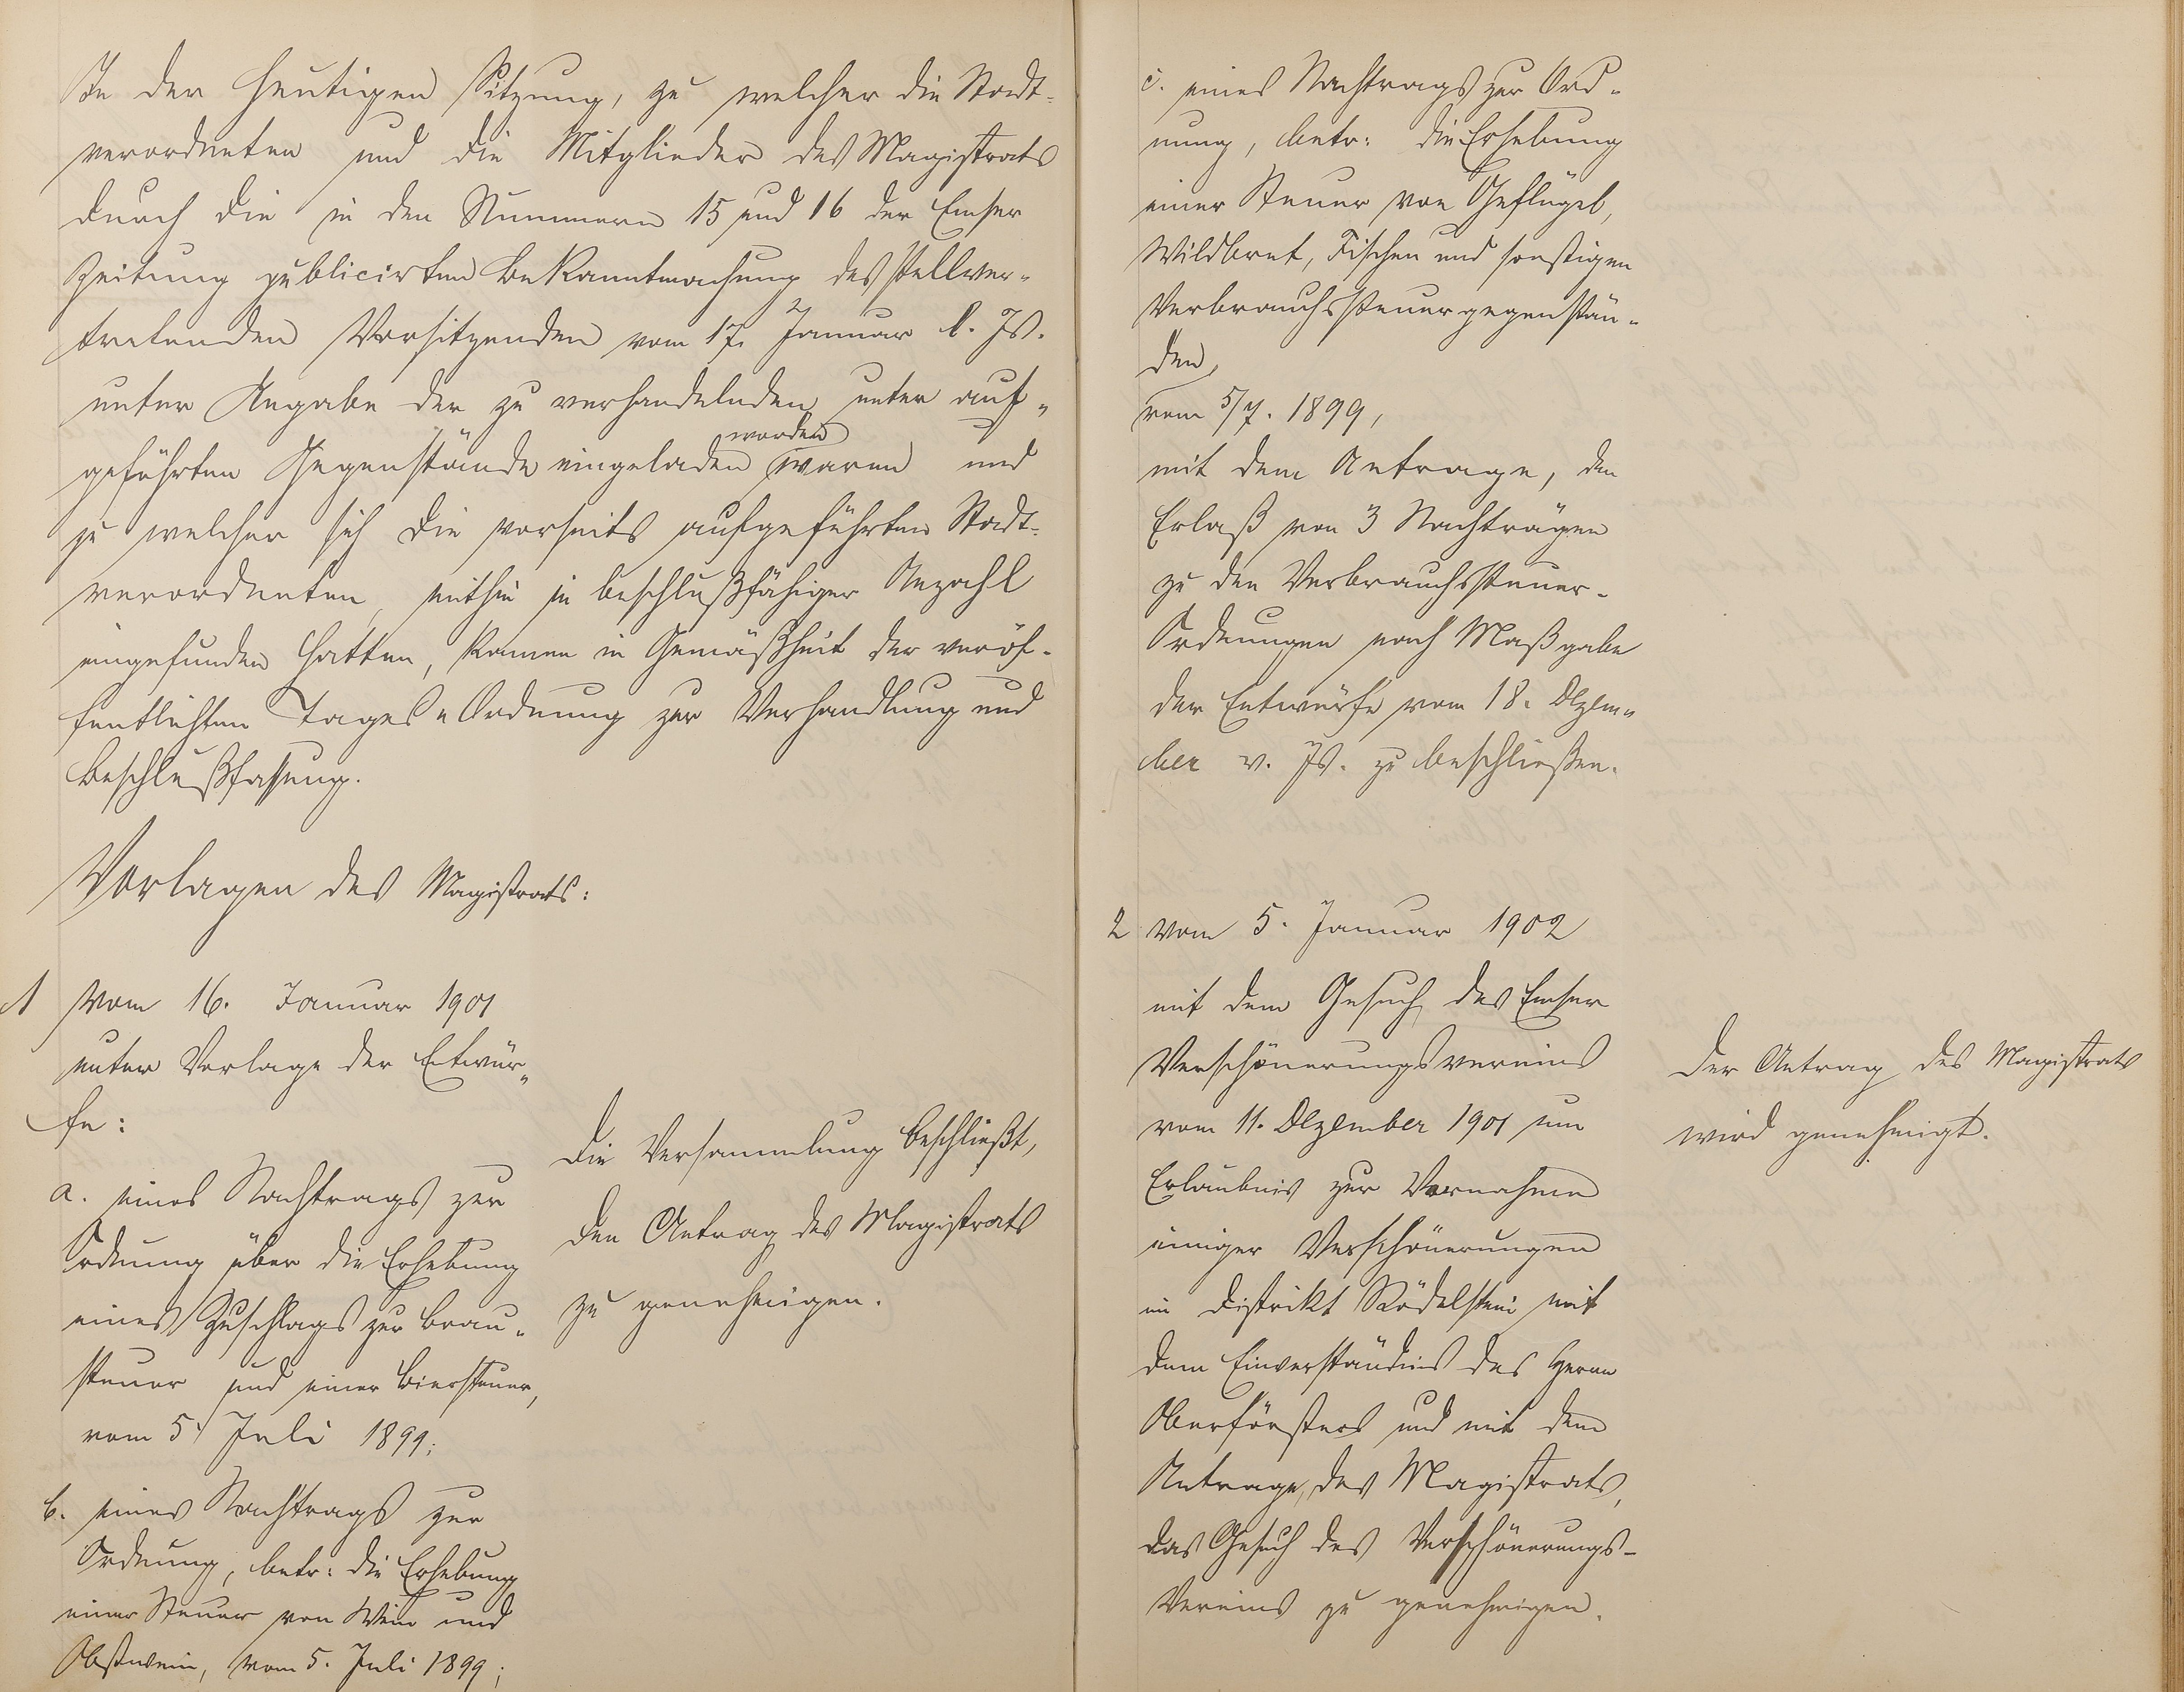 In der heutigen Sitzung, zu welcher die Stadt-
verordneten und die Mitglieder des Magistrats
durch die in den Nummern 15 und 16 der Emser
Zeitung publicirten Bekanntmachung des stellver-
tretenden Vorsitzenden vom 17. Januar l. Js.
unter Angabe der zu verhandelnden unten auf-
geführten Gegenstände eingeladen worden waren und
zu welcher sich die vorseits aufgeführten Stadt-
verordneten, mithin in beschlußfähiger Anzahl
eingefunden hatten, kamen in Gemäßheit der veröf-
fentlichten Tages-Ordnung zur Verhandlung und
Beschlußfassung.
Vorlagen des Magistrats:
1 Vom 16. Januar 1901
unter Vorlage der Entwür-
fe:
a. eines Nachtrags zur
Ordnung über die Erhebung
eines Zuschlags zur Brau-
steuer und einer Biersteuer,
vom 5. Juli 1899;
b. eines Nachtrags zur
Ordnung, betr: die Erhebung
einer Steuer von Wein und
Obstwein, vom 5. Juli 1899;
Die Versammlung beschließt,
den Antrag des Magistrats
zu genehmigen.
c. eines Nachtrags zur Ord-
nung, betr: die Erhebung
einer Steuer von Geflügel,
Wildbret, Fischen und sonstigen
Verbrauchssteuergegenstän-
den,
vom 5/7. 1899,
mit dem Antrage, den
Erlaß von 3 Nachträgen
zu den Verbrauchssteuer-
Ordnungen nach Maßgabe
der Entwürfe vom 18. Dezem-
ber v. Js. zu beschließen.
2 Vom 5. Januar 1902
mit dem Gesuch des Emser
Verschönerungsvereins
vom 11. Dezember 1901 um
Erlaubnis zur Vornahme
einiger Verschönerungen
im Distrikt Rödelstein mit
dem Einverständnis des Herrn
Oberförsters und mit dem
Antrage, des Magistrats,
das Gesuch des Verschönerungs-
Vereins zu genehmigen.
Der Antrag des Magistrats
wird genehmigt.